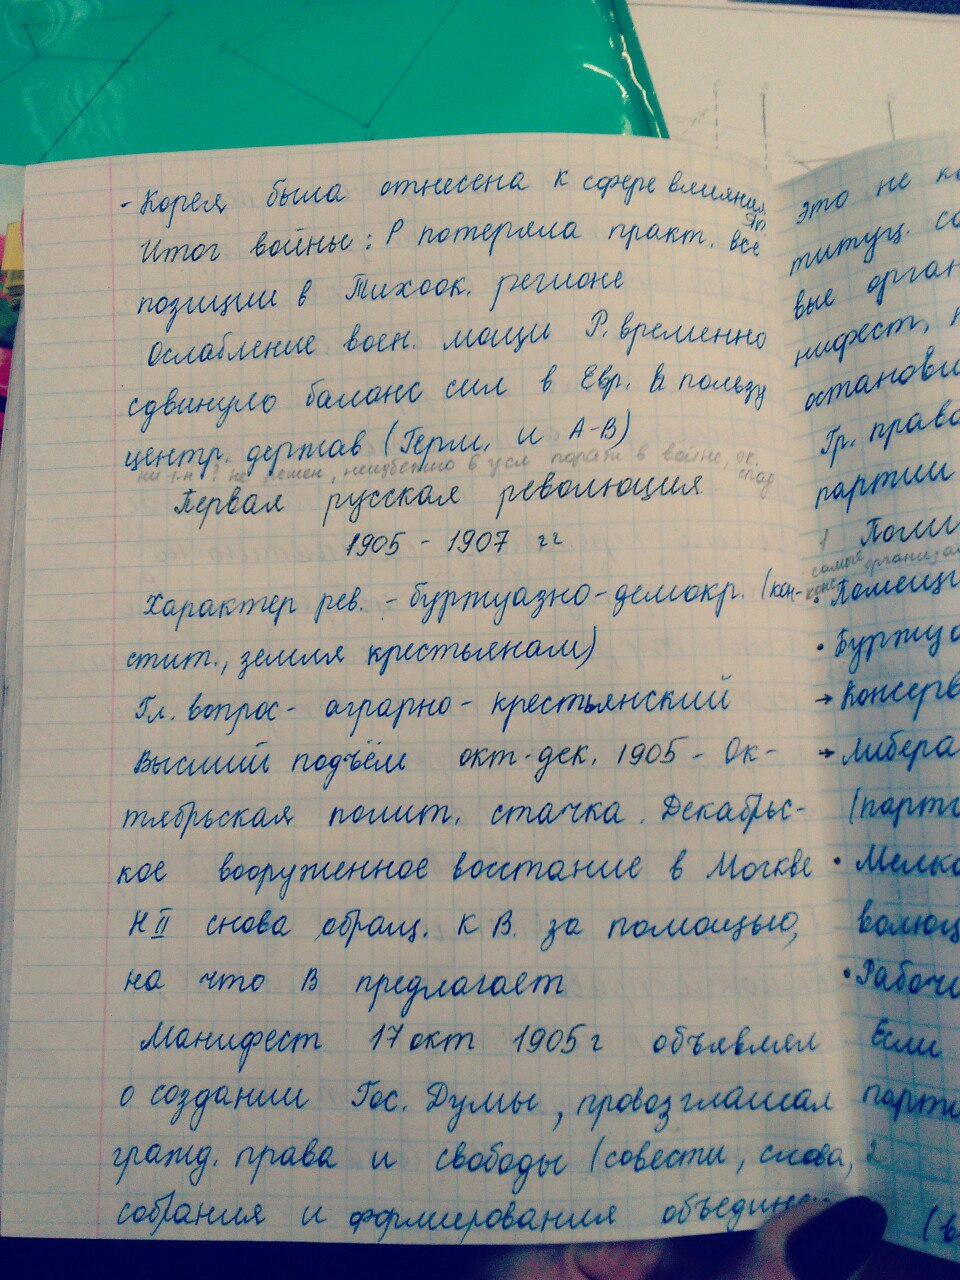 - Корея была отнесена к сфере влияния
Яп.
Итог войны: Р потеряла практ. все
позиции в Тихоок. регионе
Ослабление воен. мощи Р. временно
сдвинуло баланс сил в Евр. в пользу
центр. держав (Герм. и А-В)
? не решен, неизбежно в усл пораж в войне, эк.
спад
Первая русская революция
1905 - 1907 гг
Характер рев. - буржуазно-демокр. (кон-
стит., земля крестьянам)
Гл. вопрос - аграрно - крестьянский
Высший подъём окт-дек. 1905 - Ок-
тябрьская полит. стачка. Декабрьс-
кое вооруженное восстание в Москве
Н II снова обращ. к В. за помощью,
на что В предлагает
Манифест 17 окт 1905 г объявлял
о создании Гос. Думы, провозглашал
гражд. права и свободы (совести, слова,
собрания и формирования объедин
это не ко
титуц. со
вые орган
нифест, п
останови
Гр. право
партии
1 Поли
самые организа
• Помещ
• Буржуа
→ Консерв
→ Либера
(парти
• Мелко
волюц
• Рабочи
Если
парти
2
(в